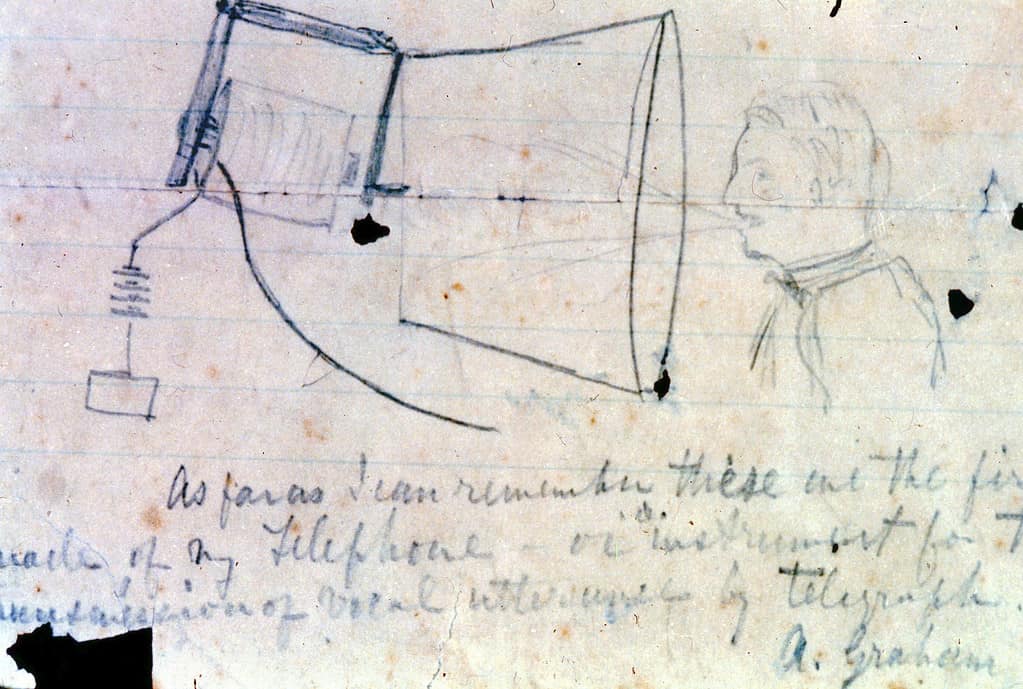 As far as I can remember these are the fir
made of my Telephone - or instrument for the T
ransmission of vocal utterances by telegraph.
A. Graham